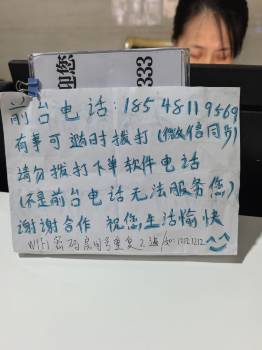 迎您
333
前台电话:18548119569
有事可随时拨打(微信同号)
请勿拨打下单软件电话
(不是前台电话无法服务您)
谢谢合作 祝您生活愉快
WIFI密码房间号重复2遍/如:12121212